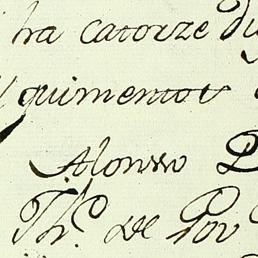 tra catorze di
quimentos
Alonso D
Th.º de Pov